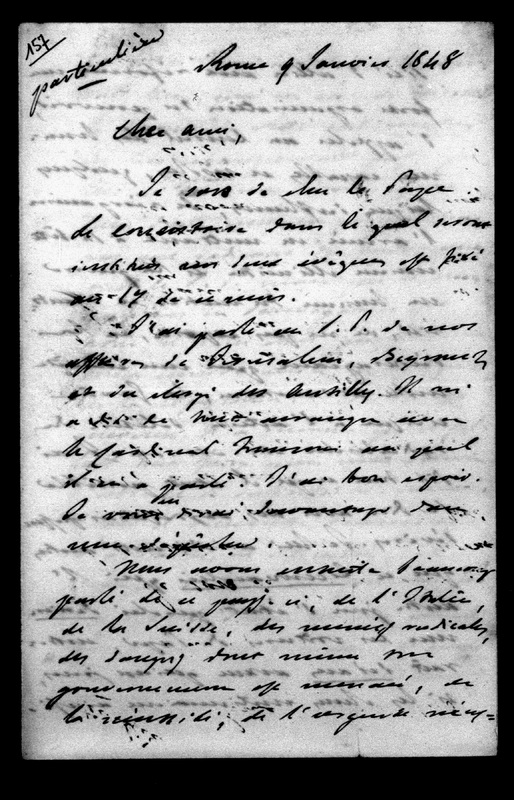 157
particulière
Rome 9 Janvier 1848
Cher ami,
Je sors de chez le Pape
le consistoire dans lequel seront
institués nos deux évêques est fixé
au 17 de ce mois.
J'ai parlé au S. P. de nos
affaires de Jérusalem, Beyrouth
et du clergé des Antilles. Il m'
a dit de tout arranger avec
le Cardinal Fransoni auquel
il en a parlé. J'ai bon espoir.
Je vous en dirai davantage dans
une dépêche.
Nous avons ensuite beaucoup
parlé de ce pays-ci, de l'Italie,
de la Suisse, des menées radicales,
des dangers dont même son
gouvernement est menacé, de
la nécessité, de l'urgence